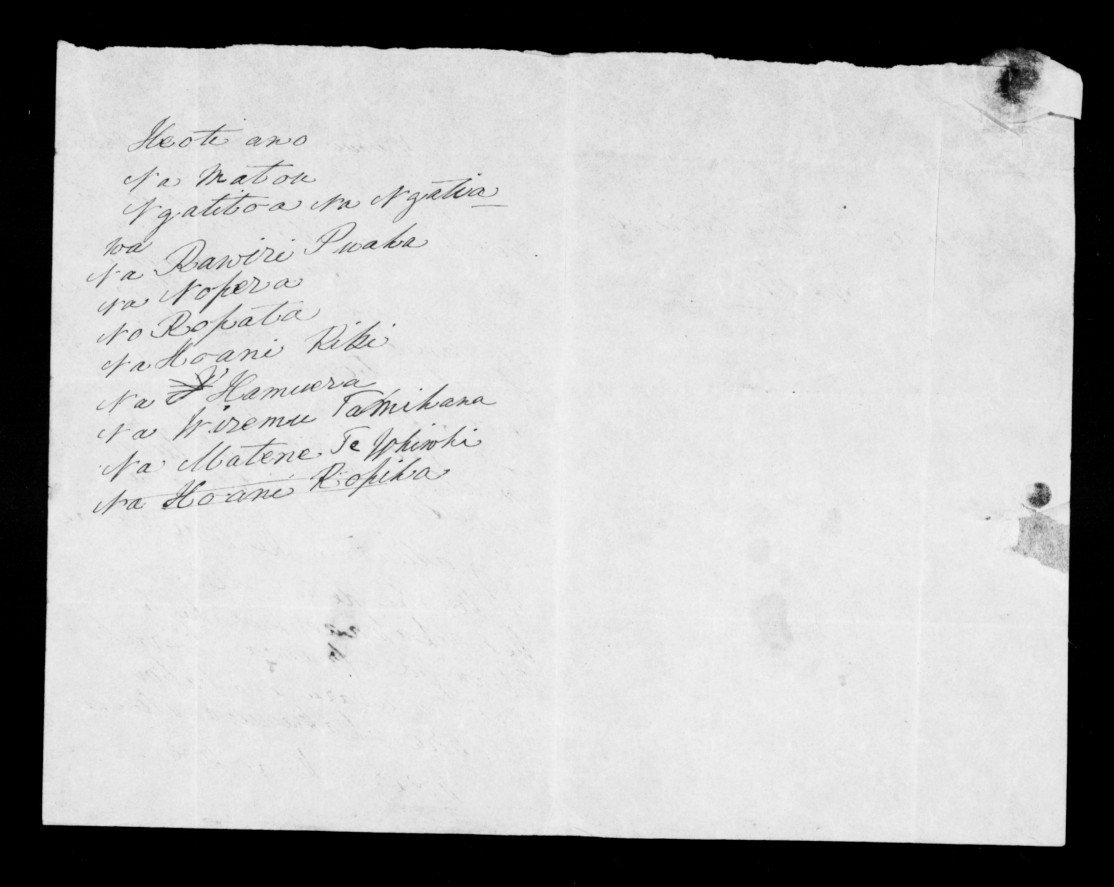 Heoti ano
Na Matou
Ngatitoa Na Ngatia
wa
Na Rawiri Puaha
Na Nopera
No Ropata
Na Hoani Riki
Na Hamuera
Na Wiremu Tamihana
Na Matene Te Whiwhi
Na Hoani Ropiha